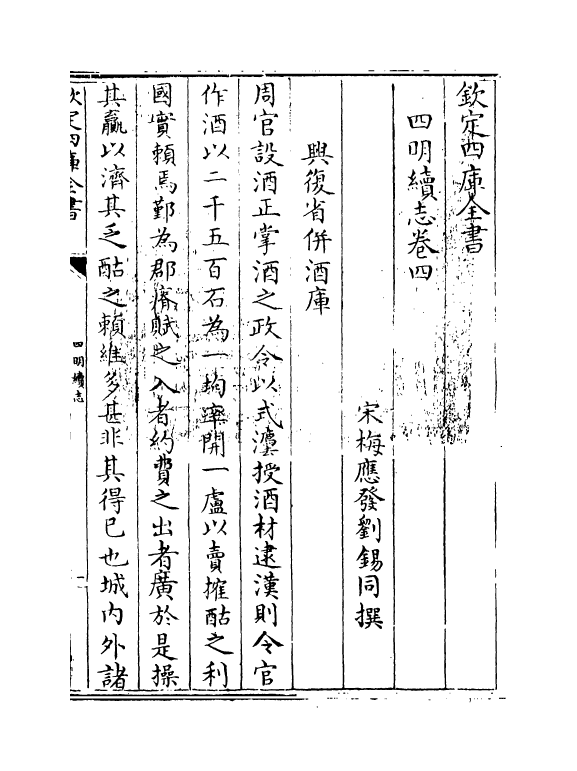 欽定四庫全書
四明續志卷四
宋梅應發劉錫同撰
興復省併酒庫
周官設酒正掌酒之政令以式灋授酒材逮漢則令官
作酒以二千五百石為一均率開一盧以賣搉酤之利
國實賴焉鄞為郡瘠賦之入者約費之出者廣於是操
其贏以濟其乏酤之賴維多甚非其得已也城内外諸
欽定四庫全書
四明續志
一